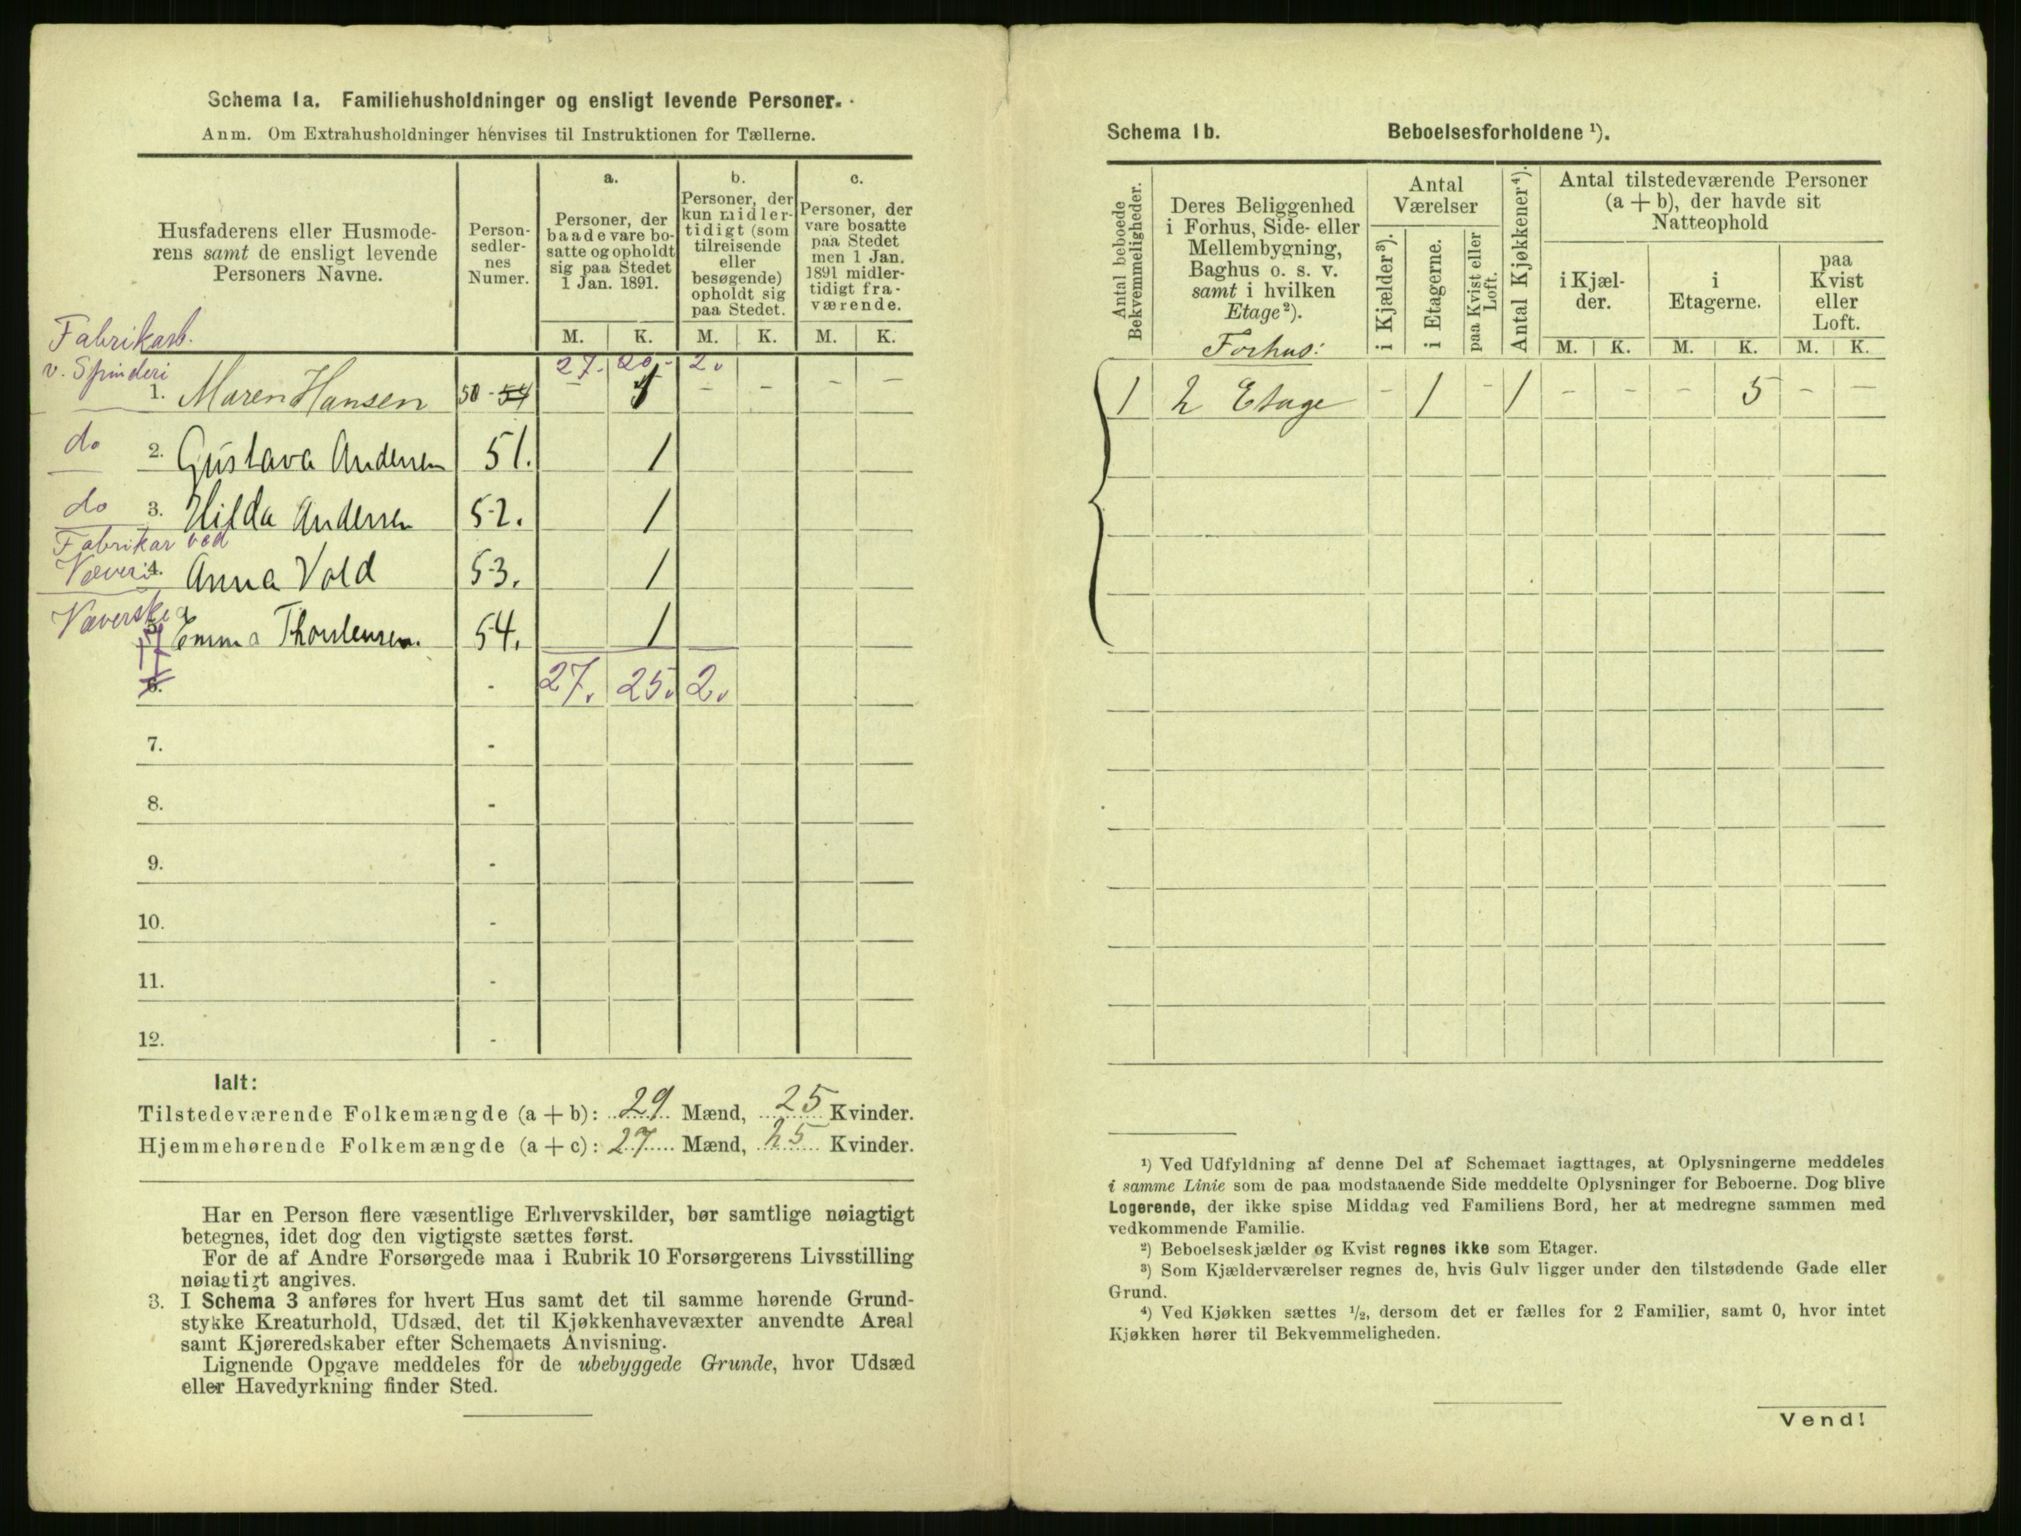 Schema 1a. Familiehusholdninger og ensligt levende Personer.
Anm. Om Extrahusholdninger henvises til Instruktionen for Tællerne.
Husfaderens eller Husmode-
rens samt de ensligt levende
Personers Navne.
Person-
sedler-
nes
Numer.
a.
Personer, der
baade vare bo-
satte og opholdt
sig paa Stedet
1 Jan. 1891.
b.
Personer, der
kun midler-
tidigt (som
tilreisende
eller
besøgende)
opholdt sig
paa Stedet.
c.
Personer, der
vare bosatte
paa Stedet
men 1 Jan.
1891 midler-
tidigt fra-
værende.
M. K. M. K. M. K.
Fabrikarb.
v. Spinderi
27. 20 - 2.
1. Maren Hansen 50 - 54 – 1 – – – –
do 2. Gustava Andersen 51. 1
do 3. Hilda Andersen 52. 1
Fabrikar ved
Væveri 4. Anna Vold 53. 1
Væverske 5. Emma Thorstensen. 54. 1
17
6. - 27. 25. 2.
7. -
8. -
9. -
10. -
11. -
12. -
Ialt:
Tilstedeværende Folkemængde (a + b): 29 Mænd, 25 Kvinder.
Hjemmehørende Folkemængde (a + c): 27 Mænd, 25 Kvinder.
Har en Person flere væsentlige Erhvervskilder, bør samtlige nøiagtigt
betegnes, idet dog den vigtigste sættes først.
For de af Andre Forsørgede maa i Rubrik 10 Forsørgerens Livsstilling
nøiagtigt angives.
3. I Schema 3 anføres for hvert Hus samt det til samme hørende Grund-
stykke Kreaturhold, Udsæd, det til Kjøkkenhavevæxter anvendte Areal
samt Kjøreredskaber efter Schemaets Anvisning.
Lignende Opgave meddeles for de ubebyggede Grunde, hvor Udsæd
eller Havedyrkning finder Sted.
Schema 1b. Beboelsesforholdene ¹).
Antal beboede
Bekvemmeligheder.
Deres Beliggenhed
i Forhus, Side- eller
Mellembygning,
Baghus o. s. v.
samt i hvilken
Etage²).
Forhus:
Antal
Værelser
i Kjælder³).
i Etagerne.
paa Kvist eller
Loft.
Antal Kjøkkener⁴).
Antal tilstedeværende Personer
(a + b), der havde sit
Natteophold
i Kjæl-
der.
i
Etagerne.
paa
Kvist
eller
Loft.
M. K. M. K. M. K.
1 2 Etage – 1 – 1 – – – 5 – –
¹) Ved Udfyldning af denne Del af Schemaet iagttages, at Oplysningerne meddeles
i samme Linie som de paa modstaaende Side meddelte Oplysninger for Beboerne. Dog blive
Logerende, der ikke spise Middag ved Familiens Bord, her at medregne sammen med
vedkommende Familie.
²) Beboelseskjælder og Kvist regnes ikke som Etager.
³) Som Kjælderværelser regnes de, hvis Gulv ligger under den tilstødende Gade eller
Grund.
⁴) Ved Kjøkken sættes ½, dersom det er fælles for 2 Familier, samt 0, hvor intet
Kjøkken hører til Bekvemmeligheden.
Vend!